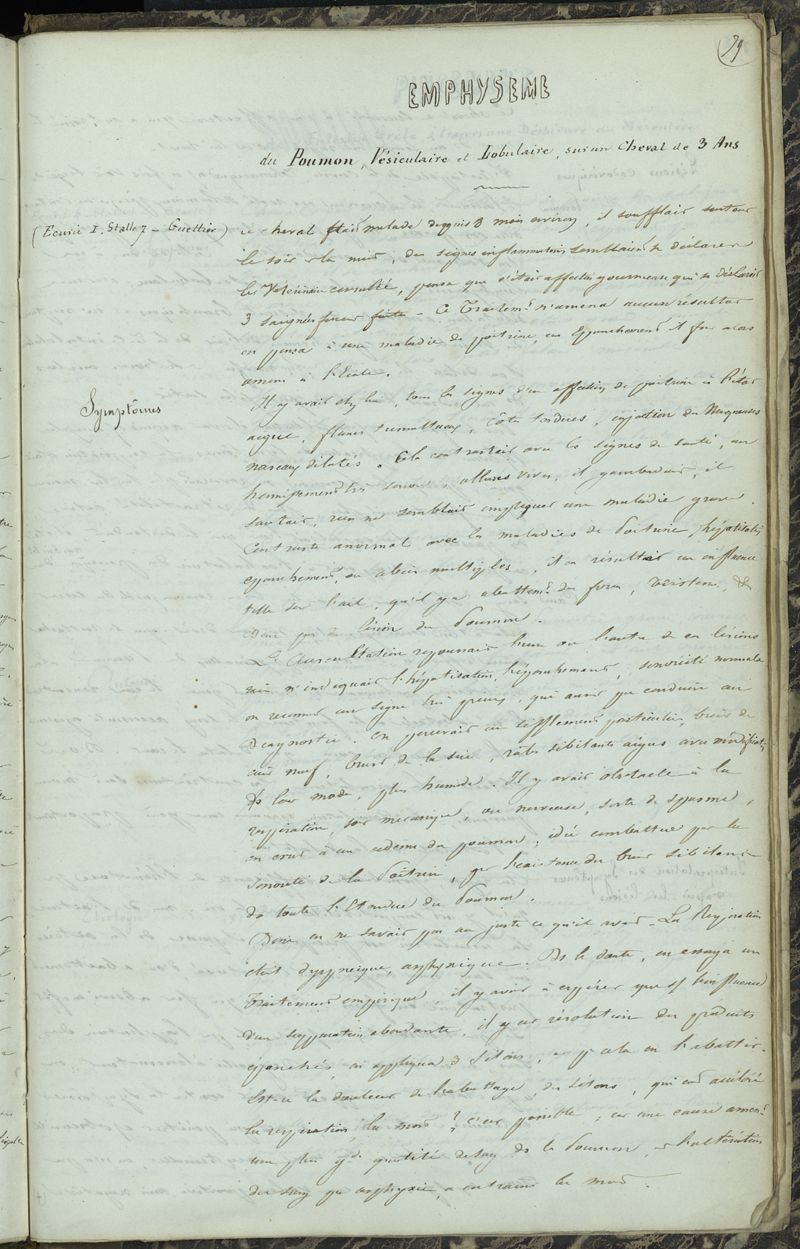 39
EMPHYSEME
du Poumon, Vésiculaire et Lobulaire, sur un Cheval de 3 Ans
(Ecurie I. Stalle 7 - Guettier) Ce cheval était malade depuis 3 mois environ, il soufflait surtout
le soir et la nuit, des signes inflammatoires semblaient se déclarer
Le Vétérinaire consulté, pensa que c'était affection gourmeuse qui se déclarait
3 saignées furent faites - Ce Traitemt n'amena aucun résultat
on pensa à une maladie de poitrine, un Epanchement et fut alors
amené à l'Ecole.
Symptômes
Il y avait chez lui, tous les signes d'une affection de poitrine à l'état
aigue, flancs tumultueux, côtes tendues, injection des Muqueuses
naseaux dilatés. Cela contrastait avec les signes de santé, un
hennissement très sonore, allures vives, il gambadait, il
sautait, rien ne semblait impliquer une maladie grave.
Contraste anormal avec les maladies de Poitrine, hépatisation
épanchement, ou abcès multiples, il en résultait une influence
telle sur l'anl, qu'il y a abattemt des forces,
Donc pas de lésion du Poumon.
L'Auscultation repoussait l'une ou l'autre de ces lésions
rien n'indiquait l'hépatisation, l'épanchement, sonoriété normale
on reconnut un signe très précieux, qui aurait pu conduire au
Diagnostic. On percevait un sifflement particulier, bruit de
cuir neuf, bruit de la scie, râles sibilants aigus avec modification
ds leur mode, plus humide. Il y avait obstacle à la
respiration, soit mécanique, ou nerveuse, sorte de spasme,
on crut à un œdème du poumon, idée combattue par la
sonorité de la Poitrine, par l'existence du bruit sibilant
ds toute l'Etendue du Poumon.
Donc on ne savait pas au juste ce qu'il avait. La Respiration
était dyspnéique, asphyxique. Ds le doute, on essaya un
Traitement empirique, il y avait à espérer que sf l'influence
d'une suppuration abondante, il y eut résolution des produits
épanchés, on appliqua 3 Sétons, et pr cela on l'abattit.
Est-ce la douleur de l'abattage, des sétons, qui ont accéléré
la respiration, la mort? c'est possible, car une cause amena
une plus gde quantité de sang ds le Poumon, et l'altération
du sang par asphyxie, a entrainé la mort.